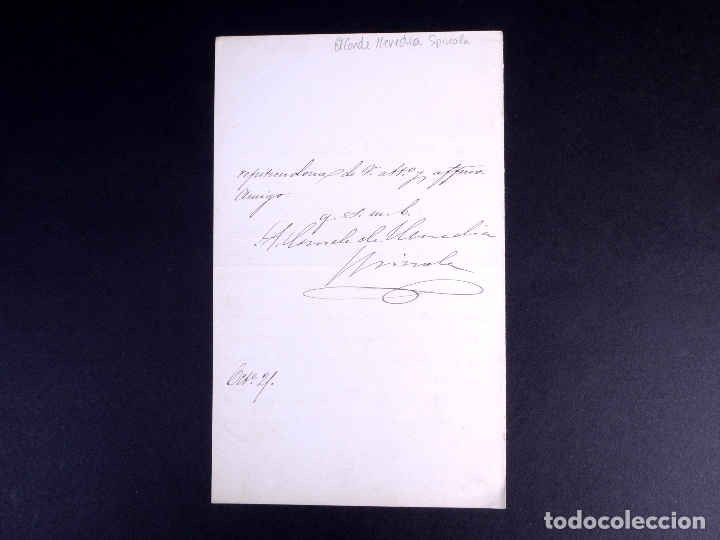 El Conde Heredia Spinola
repitiendome de V. atto. y affmo.
Amigo
q. s. m. b.
El Conde de Heredia
Spinola
Octe. 21.
todocoleccion
todocoleccion.net